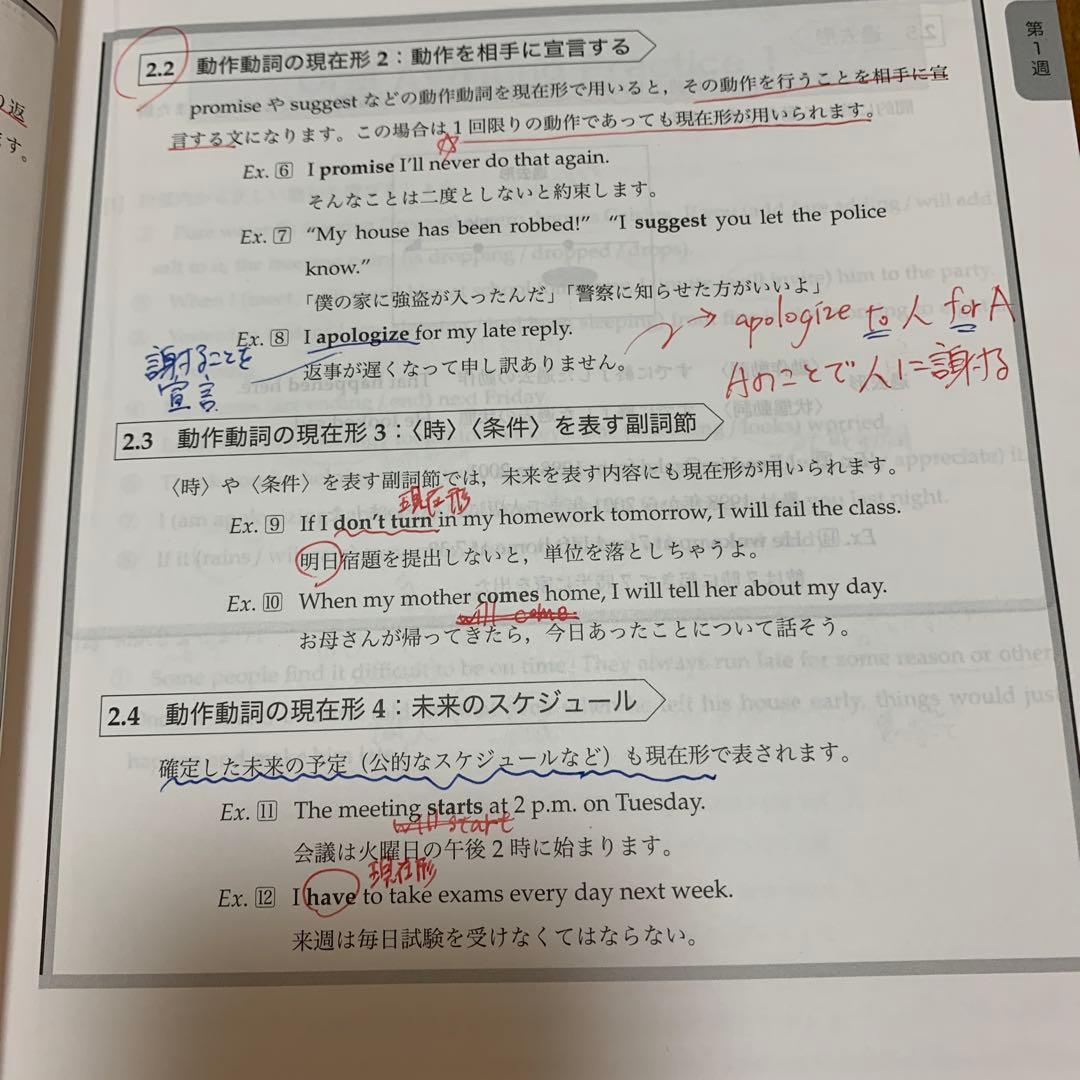 第1週
2.2 動作動詞の現在形 2：動作を相手に宣言する
promise や suggest などの動作動詞を現在形で用いると，その動作を行うことを相手に宣
言する文になります。この場合は 1 回限りの動作であっても現在形が用いられます。
Ex. 6 I promise I'll never do that again.
そんなことは二度としないと約束します。
Ex. 7 “My house has been robbed!” “I suggest you let the police
know.”
「僕の家に強盗が入ったんだ」「警察に知らせた方がいいよ」
Ex. 8 I apologize for my late reply.
返事が遅くなって申し訳ありません。
→ apologize to 人 for A
Aのことで人に謝する
謝することを
宣言
2.3 動作動詞の現在形 3：〈時〉〈条件〉を表す副詞節
〈時〉や〈条件〉を表す副詞節では，未来を表す内容にも現在形が用いられます。
現在形
Ex. 9 If I don't turn in my homework tomorrow, I will fail the class.
明日宿題を提出しないと，単位を落としちゃうよ。
Ex. 10 When my mother comes home, I will tell her about my day.
will come
お母さんが帰ってきたら，今日あったことについて話そう。
2.4 動作動詞の現在形 4：未来のスケジュール
確定した未来の予定（公的なスケジュールなど）も現在形で表されます。
Ex. 11 The meeting starts at 2 p.m. on Tuesday.
will start
会議は火曜日の午後 2 時に始まります。
現在形
Ex. 12 I have to take exams every day next week.
来週は毎日試験を受けなくてはならない。